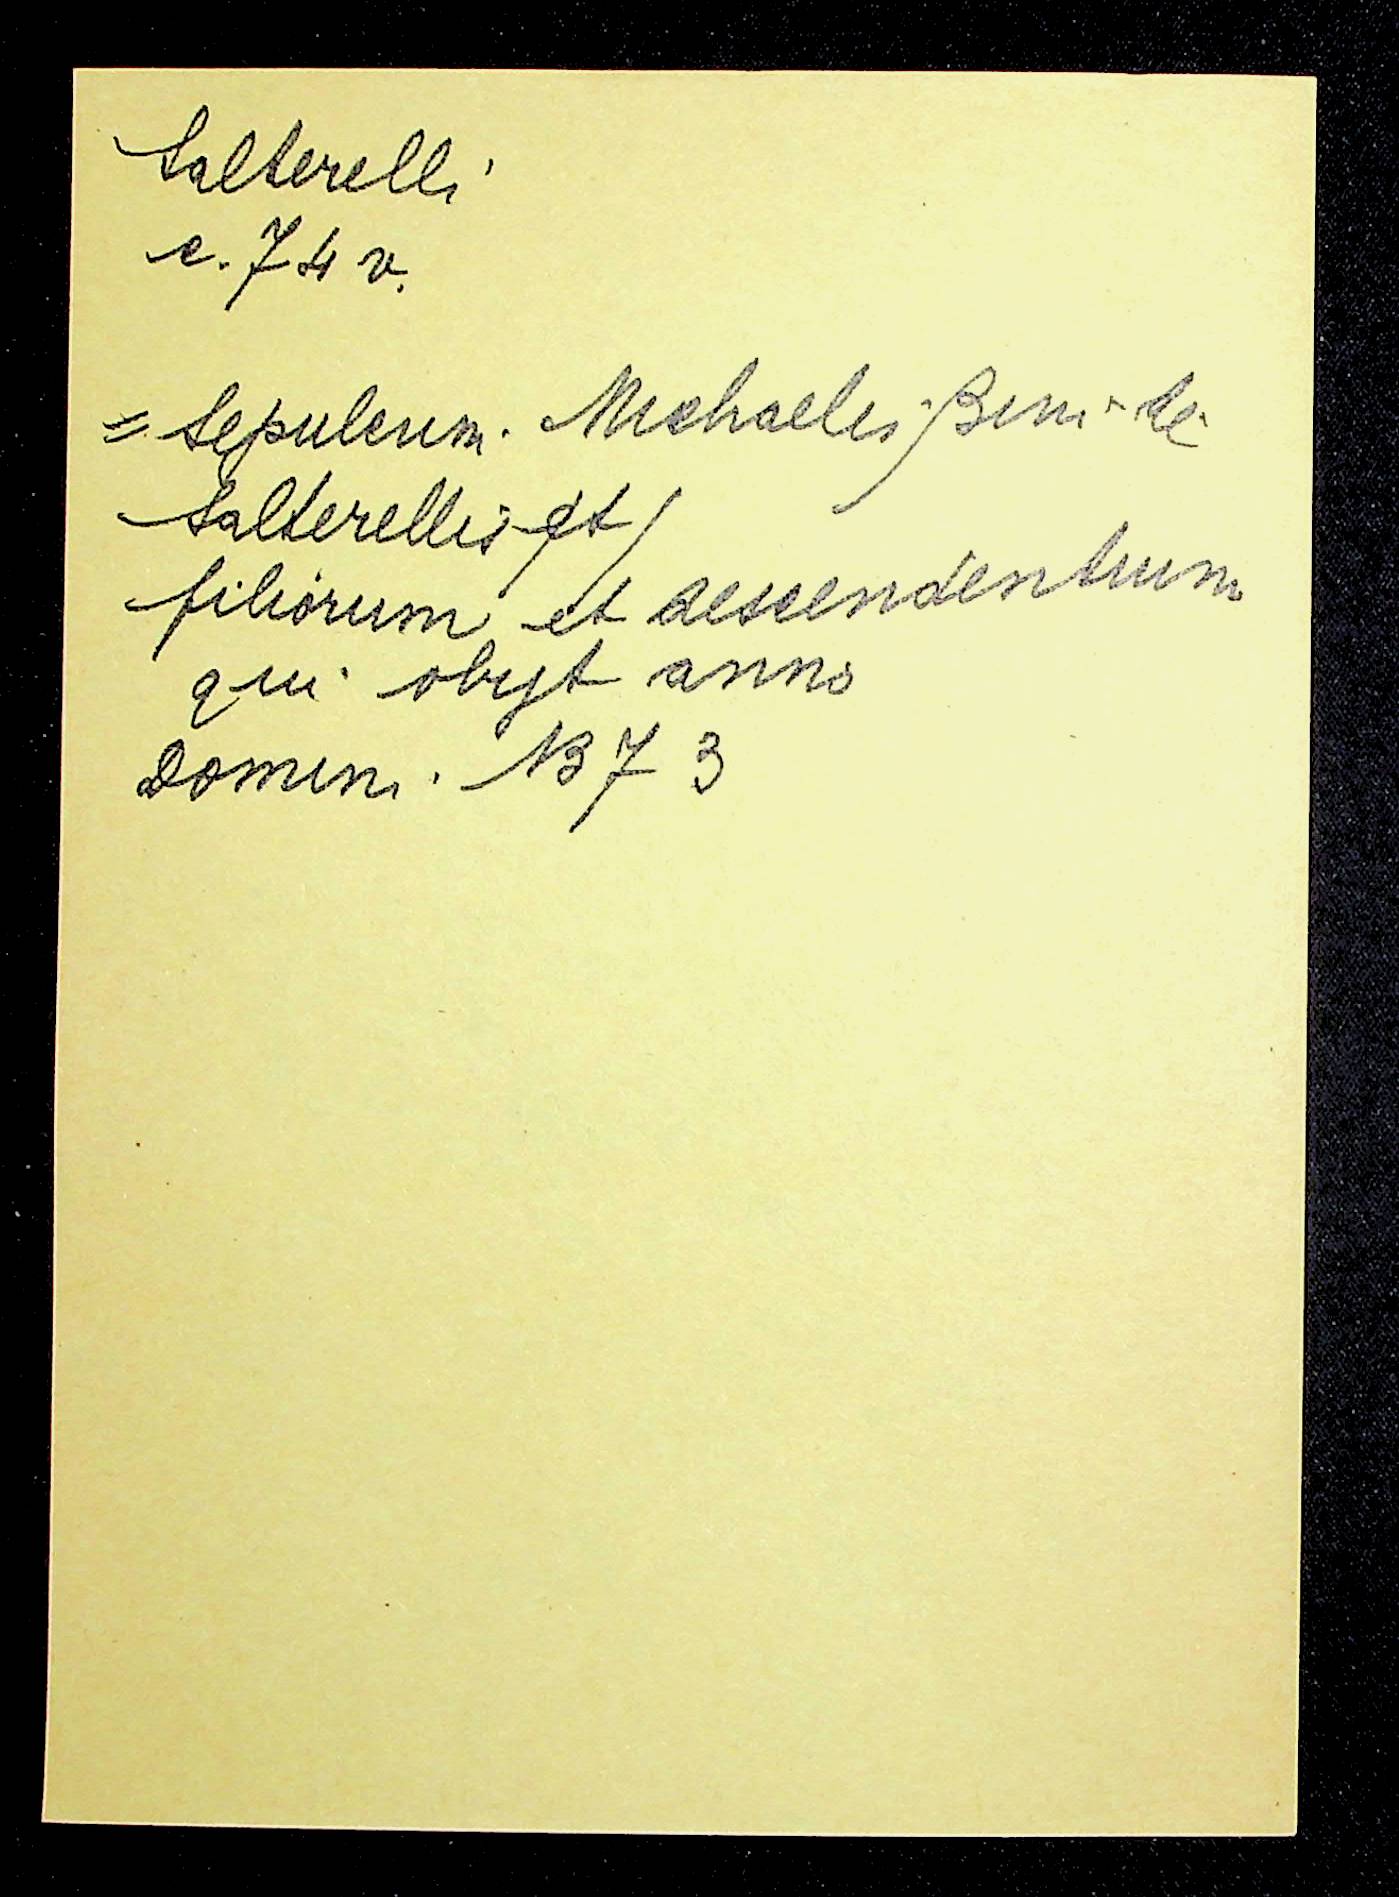 Salterelli
c. 74 v.
= Sepulcrum Michaelis Bini de
Salterellis et /
filiorum et descendentium
qui obyt anno
Domini 1373